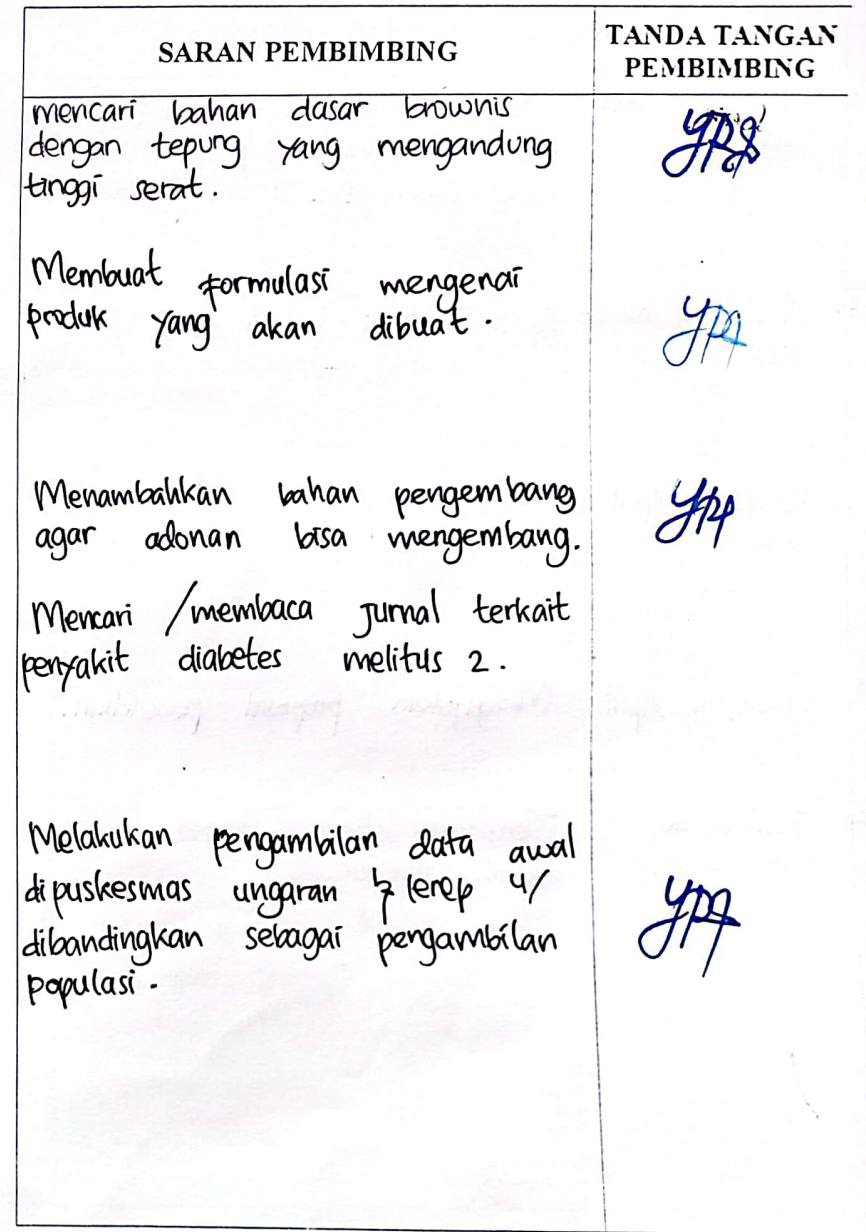 SARAN PEMBIMBING
TANDA TANGAN
PEMBIMBING
mencari bahan dasar brownis
dengan tepung yang mengandung
tinggi serat.
Membuat formulasi mengenai
produk yang akan dibuat.
Menambahkan bahan pengembang
agar adonan bisa mengembang.
Mencari /membaca Jurnal terkait
penyakit diabetes melitus 2.
Melakukan pengambilan data awal
di puskesmas ungaran & lerep u/
dibandingkan sebagai pengambilan
populasi.